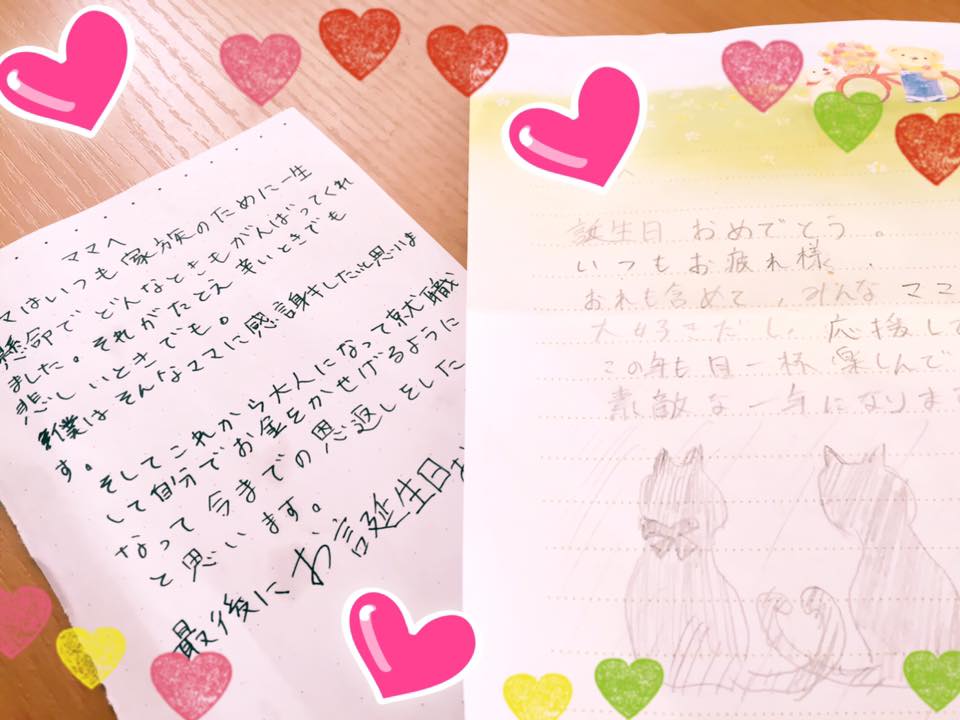 ママへ
マはいつも家族のために一生
懸命でどんなときもがんばってくれ
ました。それがたとえ辛いときでも
悲しいときでも。
僕はそんなママに感謝したいと思いま
す。
そしてこれから大人になって就職
して自分でお金をかせげるように
なって今までの恩返しをした
と思います。
最後にお誕生日お
へ
誕生日おめでとう。
いつもお疲れ様、
おれも含めて、みんなママ
大好きだし、応援して
この年も目一杯楽しんで
素敵な一年になります